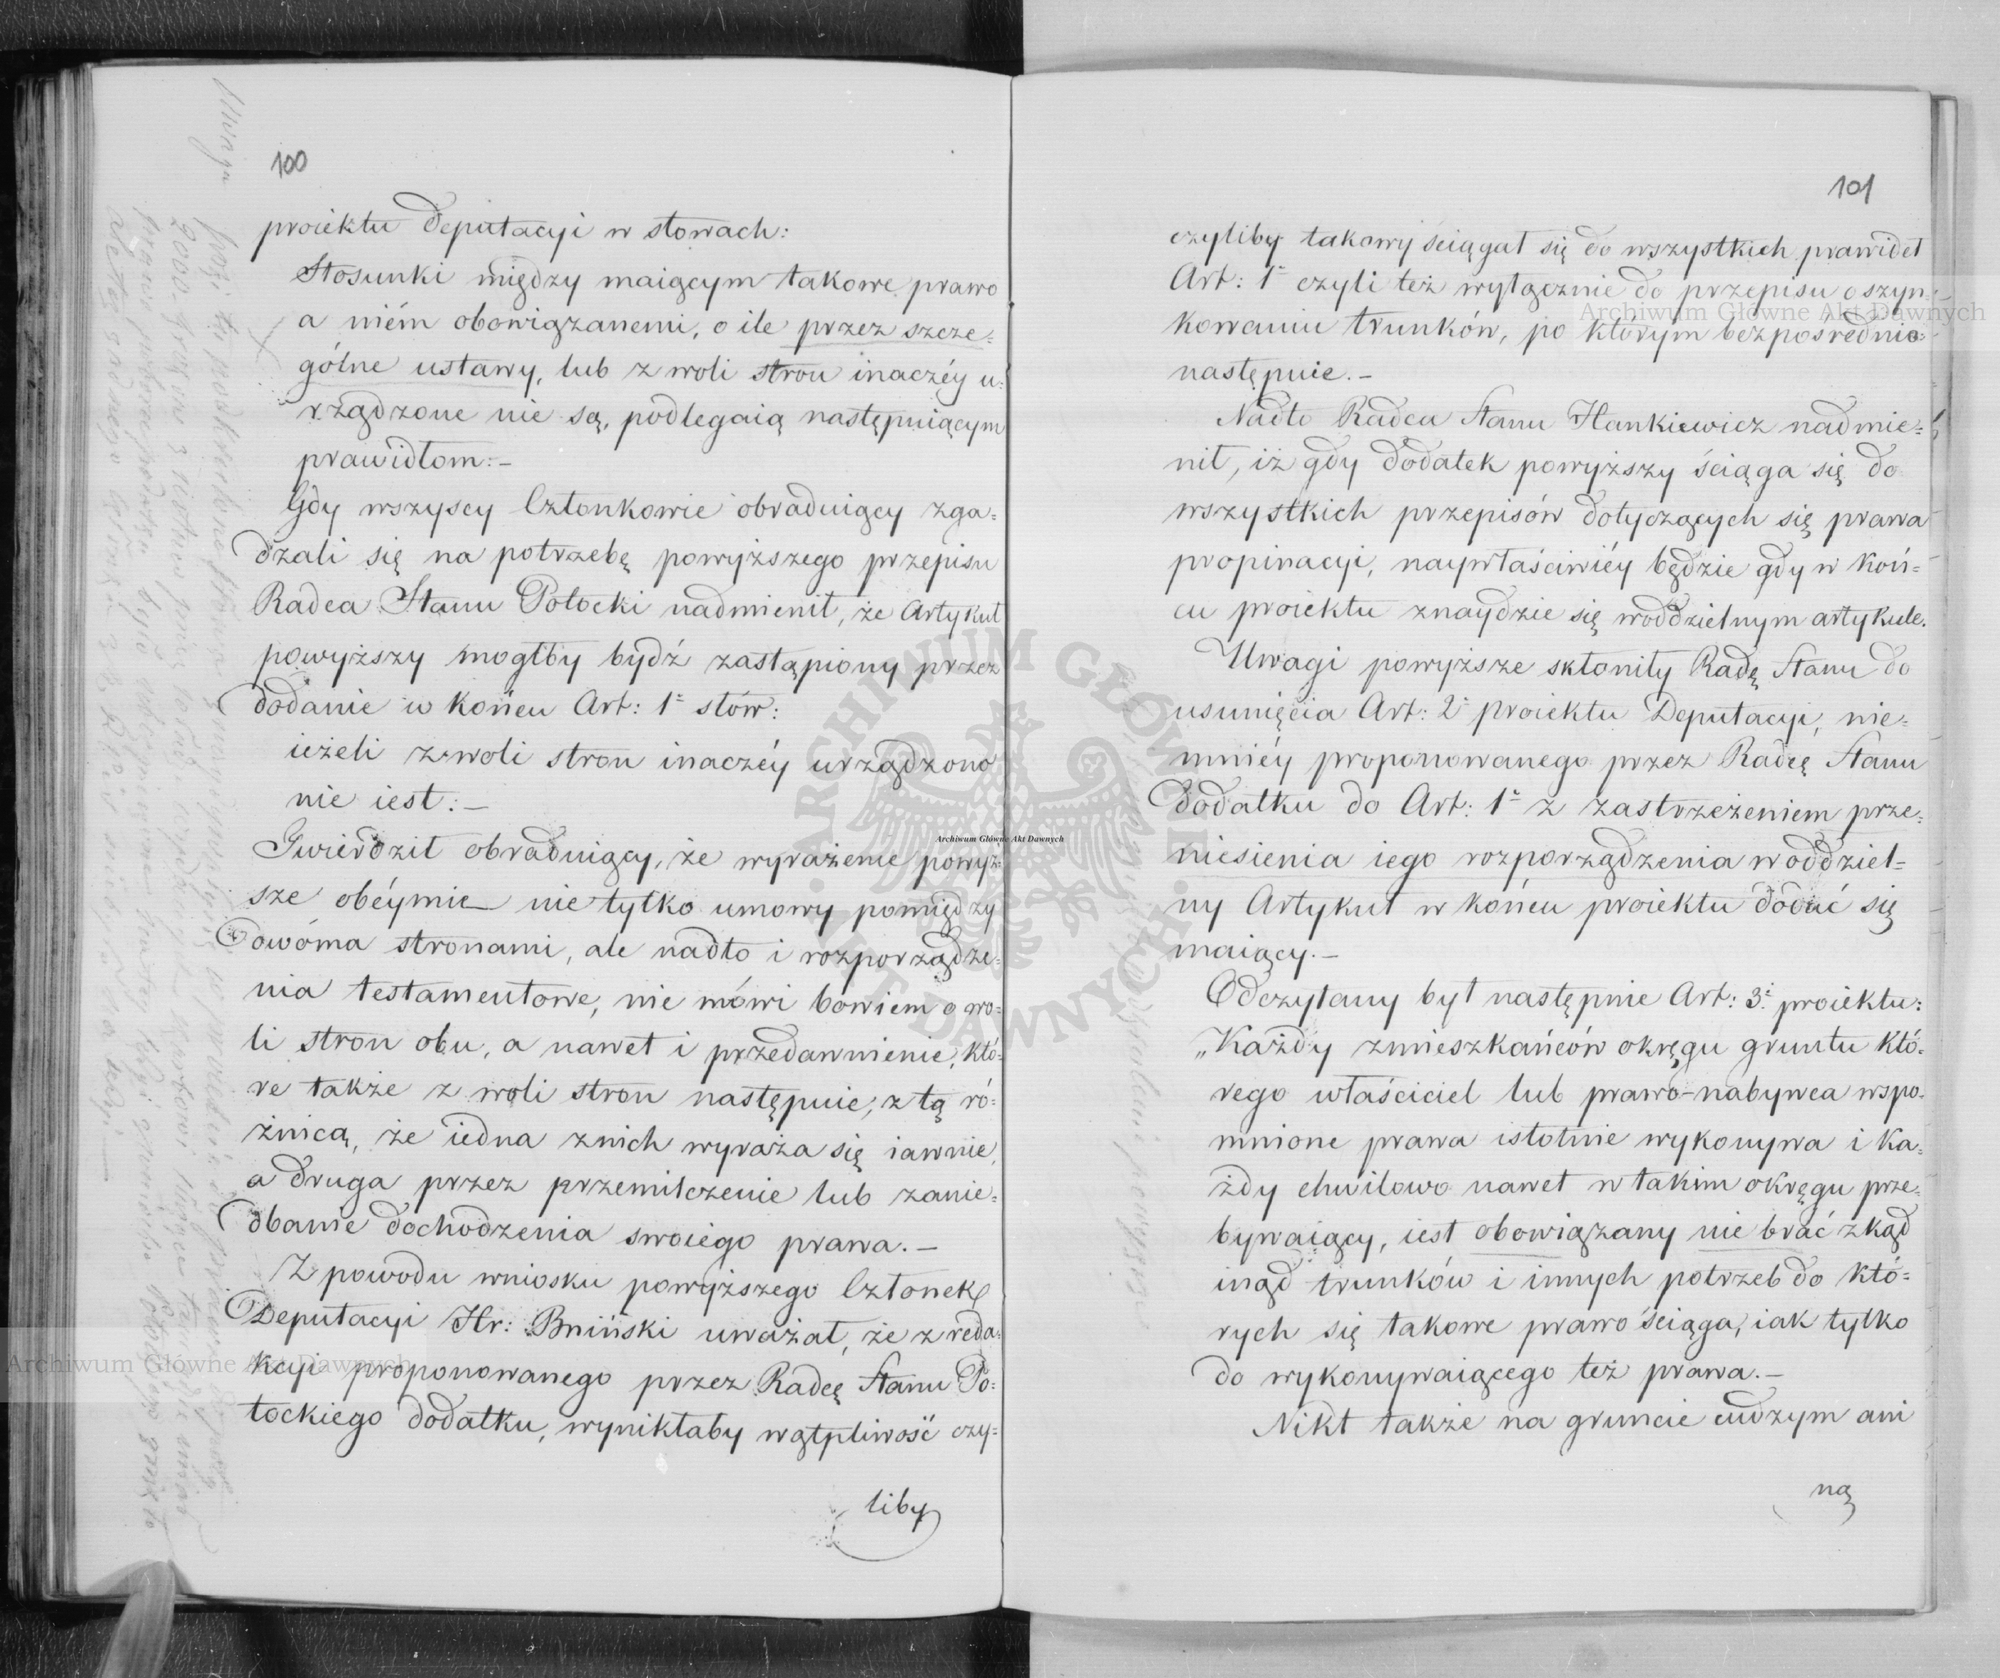 100
proiektu Deputacyi w słowach:
Stosunki między maiącym takowe prawo
a niém obowiązanemi, o ile przez szcze=
gólne ustawy, lub z woli stron inaczéy u=
rządzone nie są, podlegaią następuiącym
prawidłom:–
Gdy wszyscy Członkowie obraduiący zga=
dzali się na potrzebę powyższego przepisu
Radca Stanu Potocki nadmienił, że Artykuł
powyższy mogłby bydź zastąpiony przez
dodanie w końcu Art: 1° słów:
ieżeli z woli stron inaczéy urządzono
nie iest:–
Twierdził obraduiący, że wyrażenie powyż=
sze obéymie nie tylko umowy pomiędzy
dwóma stronami, ale nadto i rozporządze=
nia testamentowe, nie mówi bowiem o wo=
li stron obu, a nawet i przedawnienie, któ=
re także z woli stron następuie, z tą ró=
żnicą, że iedna z nich wyraża się iawnie,
a druga przez przemilczenie lub zanie=
dbanie dochodzenia swoiego prawa.–
Z powodu wniosku powyższego Członek
Deputacyi Hr: Bniński uważał, że z reda=
kcyi proponowanego przez Radcę Stanu Po=
tockiego dodatku, wynikłaby wątpliwość czy=
liby
101
czyliby takowy ściągał się do wszystkich prawideł
Art: 1° czyli też wyłącznie do przepisu o szyn=
kowaniu trunków, po którym bezpośrednio
następuie.–
Nadto Radca Stanu Hankiewicz nadmie=
nił, iż gdy dodatek powyższy ściąga się do
wszystkich przepisów dotyczących się prawa
propinacyi, naywłaściwiéy będzie gdy w koń=
cu proiektu znaydzie się w oddzielnym artykule.
Uwagi powyższe skłoniły Radę Stanu do
usunięcia Art: 2° proiektu Deputacyi, nie=
mniéy proponowanego przez Radcę Stanu
dodatku do Art: 1° z zastrzeżeniem prze=
niesienia iego rozporządzenia w oddziel=
ny Artykuł w końcu proiektu dodać się
maiący.–
Odczytany był następnie Art: 3° proiektu:
„Każdy z mieszkańców okręgu gruntu któ=
rego właściciel lub prawo-nabywca wspo=
mnione prawa istotnie wykonywa i ka=
żdy chwilowo nawet w takim okręgu prze=
bywaiący, iest obowiązany nie brać zkąd
inąd trunków i innych potrzeb do któ=
rych się takowe prawo ściąga, iak tylko
do wykonywaiącego też prawa.–
Nikt także na gruncie cudzym ani
na
Archiwum Główne Akt Dawnych
Archiwum Główne Akt Dawnych
Archiwum Główne Akt Dawnych
ARCHIWUM GŁÓWNE AKT DAWNYCH